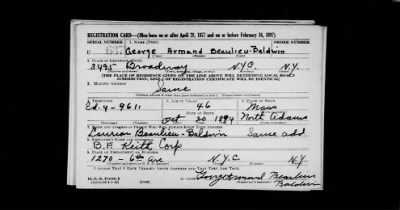 REGISTRATION CARD—(Men born on or after April 28, 1877 and on or before February 16, 1897)
SERIAL NUMBER 1. NAME (Print) ORDER NUMBER
George Armand Beaulieu-Baldwin
2. PLACE OF RESIDENCE (Print)
3495 Broadway N.Y.C. N.Y.
[THE PLACE OF RESIDENCE GIVEN ON THE LINE ABOVE WILL DETERMINE LOCAL BOARD
JURISDICTION; LINE 2 OF REGISTRATION CERTIFICATE WILL BE IDENTICAL]
3. MAILING ADDRESS
Same
4. TELEPHONE 5. AGE IN YEARS 6. PLACE OF BIRTH
Ed-4-9611 46 Mass
DATE OF BIRTH
Oct 30 1894 North Adams
7. NAME AND ADDRESS OF PERSON WHO WILL ALWAYS KNOW YOUR ADDRESS
Beaulieu-Baldwin Same add
8. EMPLOYER'S NAME AND ADDRESS
B.F. Keith Corp
9. PLACE OF EMPLOYMENT OR BUSINESS
1270 - 6th Ave N.Y.C N.Y.
I AFFIRM THAT I HAVE VERIFIED ABOVE ANSWERS AND THAT THEY ARE TRUE.
D. S. S. Form 1
George Armand Beaulieu
Baldwin